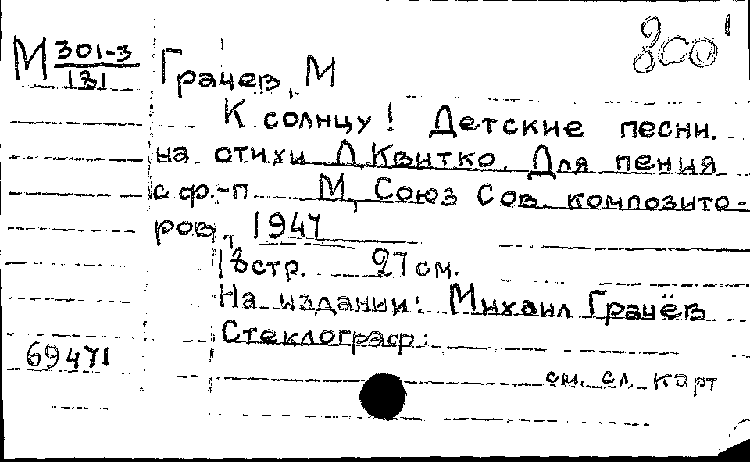 800'
М 301-3/181
Грачев, М
К солнцу! Детские песни.
на стихи Л. Квитко. Для пения
с ф.-п. М, Союз Сов. композито-
ров, 1947
18 стр. 27 см.
На издании: Михаил Грачёв
Стеклограф.
69471
см. сл. карт